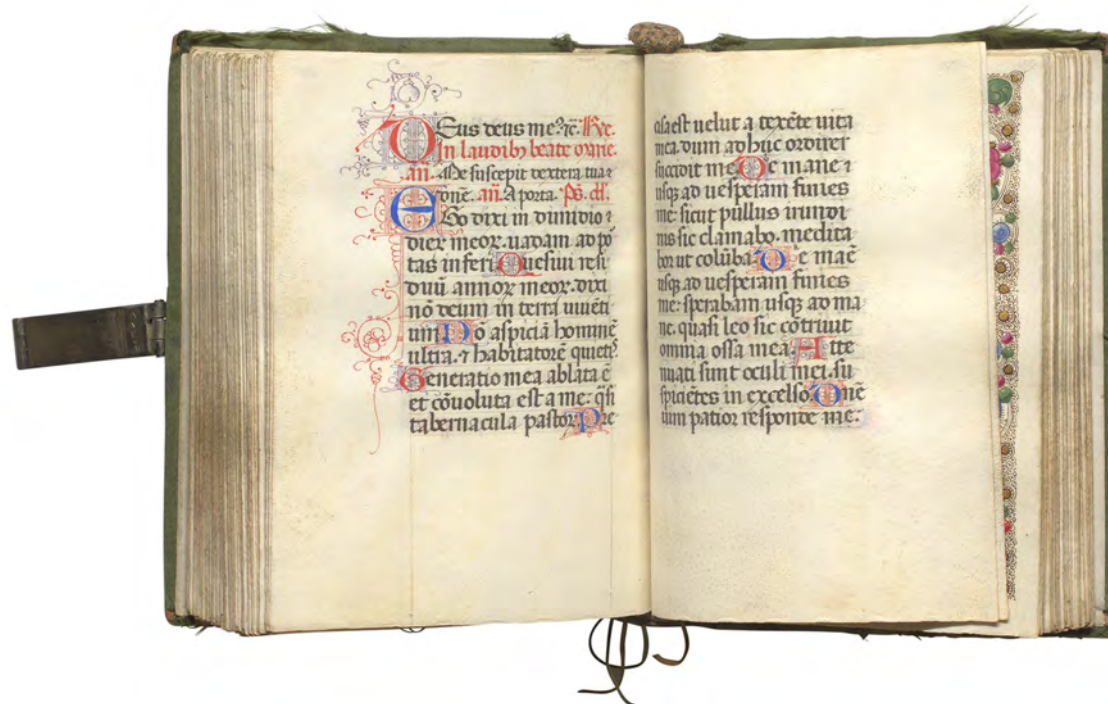 DEus deus me⁹ ⁊c̄. Require
In laudibꝫ beate oꝛōne.
añ. Me suscepit dextera tua ⁊
dn̄e. añ. A porta. Ps̄.
EGo dixi in dimidio ⁊
dieꝝ meoꝝ. uadam ad poꝛ
tas inferi Quesiui resi
duū annoꝝ meoꝝ. dixi
nō deum in terra uiuēti
um Nō aspiciā hominē
ultra. ⁊ habitatorē quietis
Generatio mea ablata ē
et cōuoluta est a me: q̄si
tabernacula pastoꝝ Pre
cisa est uelut a texēte uita
mea. dum adhuc ordirer
succidit me De mane ⁊
usqꝫ ad uesperam finies
me: sicut pullus irundi
nis sic clamabo. medita
bor ut colūba: De maē
usqꝫ ad uesperam finies
me: sperabam usqꝫ ad ma
ne. quasi leo sic cōtriuit
omnia ossa mea: Atte
nuati sunt oculi mei. su
spiciētes in excelso: Dn̄e
uim patior responde me: